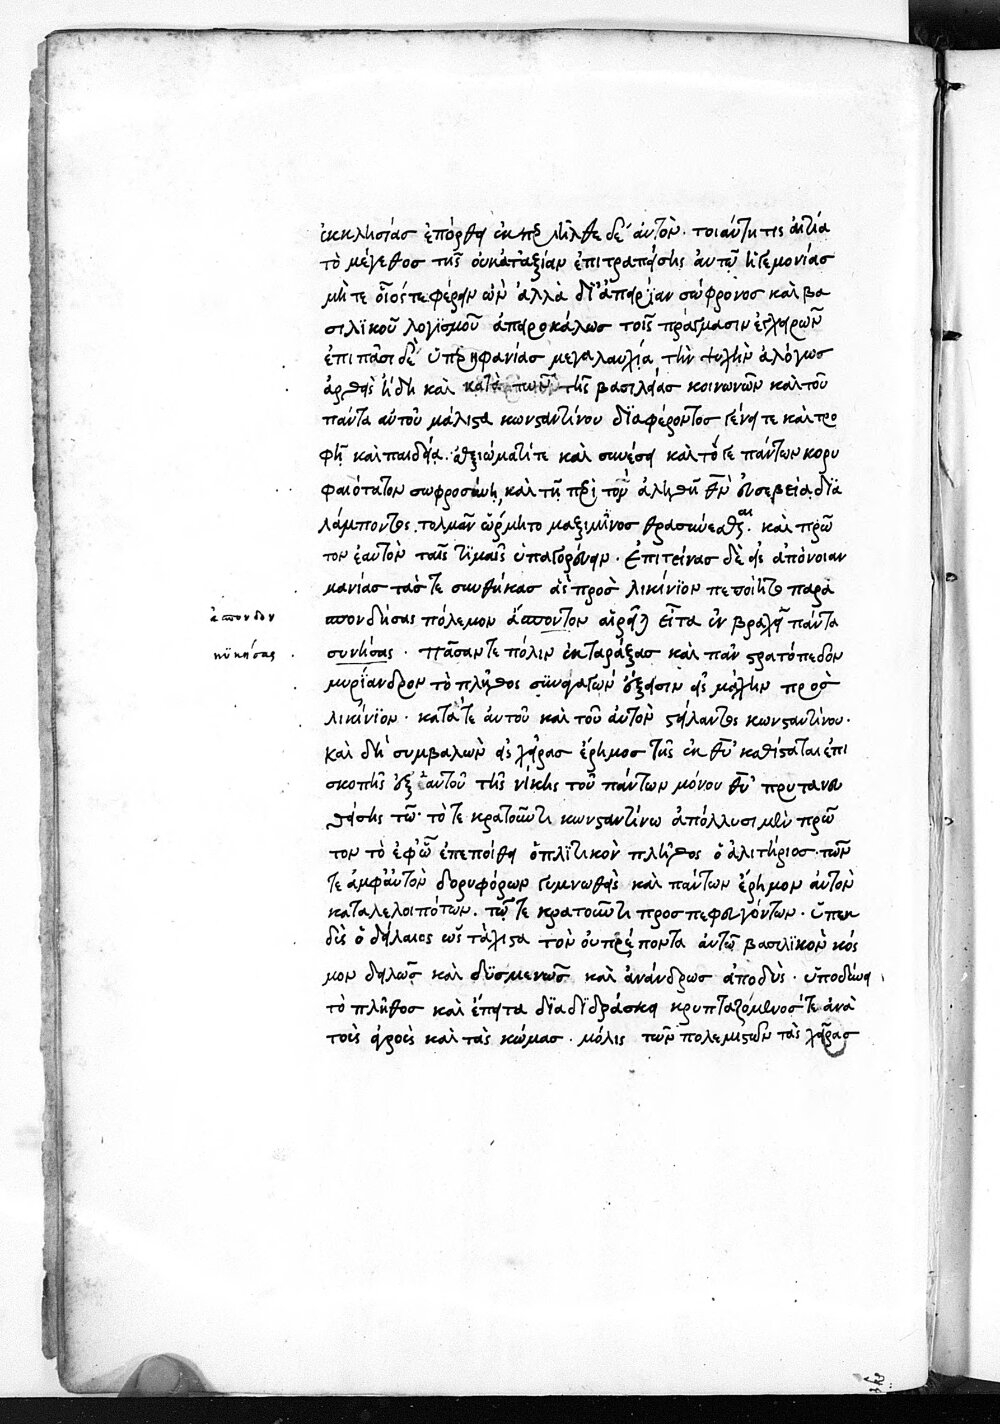 ἐκκλησίας ἐπόρθει ἐκπεριῆλθε δὲ αὐτὸν. τοιαύτη τις αἰτία
τὸ μέγεθος τῆς οὐ κατ' ἀξίαν ἐπιτραπείσης αὐτῷ ἡγεμονίας
μήτε οἷός τε φέρειν ὢν ἀλλὰ δι' ἀπειρίαν σώφρονος καὶ βα
σιλϊκοῦ λογϊσμοῦ ἀπειροκάλως τοῖς πράγμασιν ἐγχειρῶν
ἐπὶ πᾶσι δὲ ὑπερηφανίας μεγαλαυχία τὴν ψυχὴν ἀλόγως
ἀρθεὶς ἤδη καὶ κατὰ τῶν τῆς βασιλείας κοινωνῶν καὶ τοῦ
πάντα αὐτοῦ μάλιστα κωνσταντίνου διαφέροντος γένει τε καὶ τρο
φῇ καὶ παιδείᾳ. ἀξιώματί τε καὶ συνέσει καὶ τό γε πάντων κορυ
φαιότατον σωφροσύνῃ, καὶ τῇ περὶ τὸν ἀληθῆ θν εὐσεβείᾳ δϊα
λάμποντος τολμᾶν ὥρμητο μαξιμῖνος θρασύνεσθαι. καὶ πρῶ
τον ἑαυτὸν ταῖς τϊμαῖς ὑπαγορεύειν. ἐπιτείνας δὲ εἰς ἀπόνοιαν
μανίας τάς τε συνθήκας ἃς πρὸς λικίνϊον πεποίητο παρα
σπονδήσας πόλεμον ἄσπονδον αἴρεται εἶτα ἐν βραχεῖ πάντα
συνήσας. πᾶσάν τε πόλιν ἐκταράξας καὶ πᾶν στρατόπεδον
μυρϊάνδρον τὸ πλῆθος συναγαγὼν ἔξεισιν εἰς μάχην πρὸς
λικίνϊον. κατά τε αὐτοῦ καὶ τοῦ αὐτὸν στείλαντος κωνσταντίνου.
καὶ δὴ συμβαλὼν εἰς χεῖρας ἔρημος τῆς ἐκ θυ καθίσταται ἐπι
σκοπῆς ἐξ αὐτοῦ τῆς νίκης τοῦ πάντων μόνου θυ πρυτανευ
θείσης τῷ τότε κρατοῦντι κωνσταντίνω ἀπόλλυσι μὲν πρῶ
τον τὸ ἐφ' ᾧ ἐπεποίθει ὁπλϊτικὸν πλῆθος ὁ ἀλιτήριος. τῶν
τε ἀμφ' αὐτὸν δορυφόρων γυμνωθεὶς καὶ πάντων ἔρημον αὐτὸν
καταλελοιπότων. τῷ τε κρατοῦντι προσπεφευγότων. ὑπεκ
δὺς ὁ δείλαιος ὡς τάχιστα τὸν οὐ πρέποντα αὐτῷ βασιλϊκὸν κόσ
μον δειλῶς καὶ δϋσμενῶς καὶ ἀνάνδρως ἀποδὺς. ὑποδύνει
τὸ πλῆθος καὶ ἔπειτα δϊαδϊδράσκει κρυπταζόμενός τε ἀνὰ
τοὺς ἀγροὺς καὶ τὰς κώμας. μόλις τῶν πολεμίων τὰς χεῖρας
ἄσπονδον
κϋκήσας